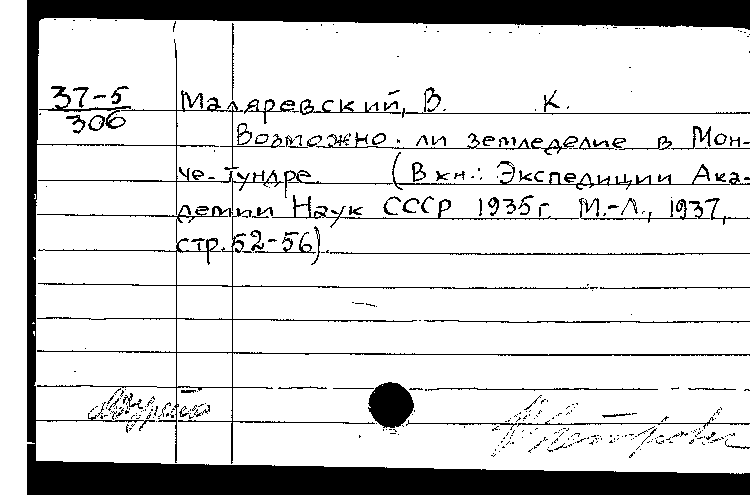 37-5
306
Маляревский, В. К.
Возможно ли земледелие в Мон-
че-Тундре (В кн.: Экспедиции Ака-
демии Наук СССР 1935г. М.-Л., 1937,
стр. 52-56).